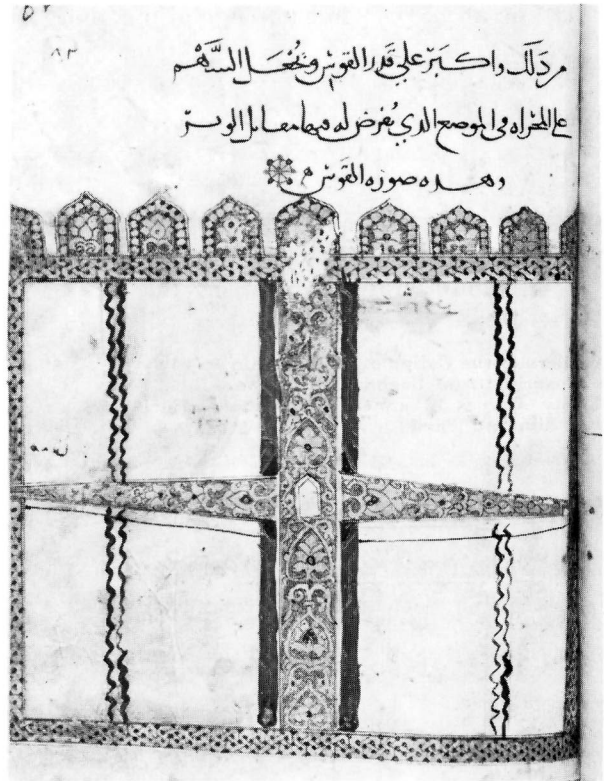 من ذلك واكبر علي قدر القوس وتجعل السهم
علي المجراه في الموضع الذي يفرض له فيها مقابل الوتر
وهذه صوره القوس